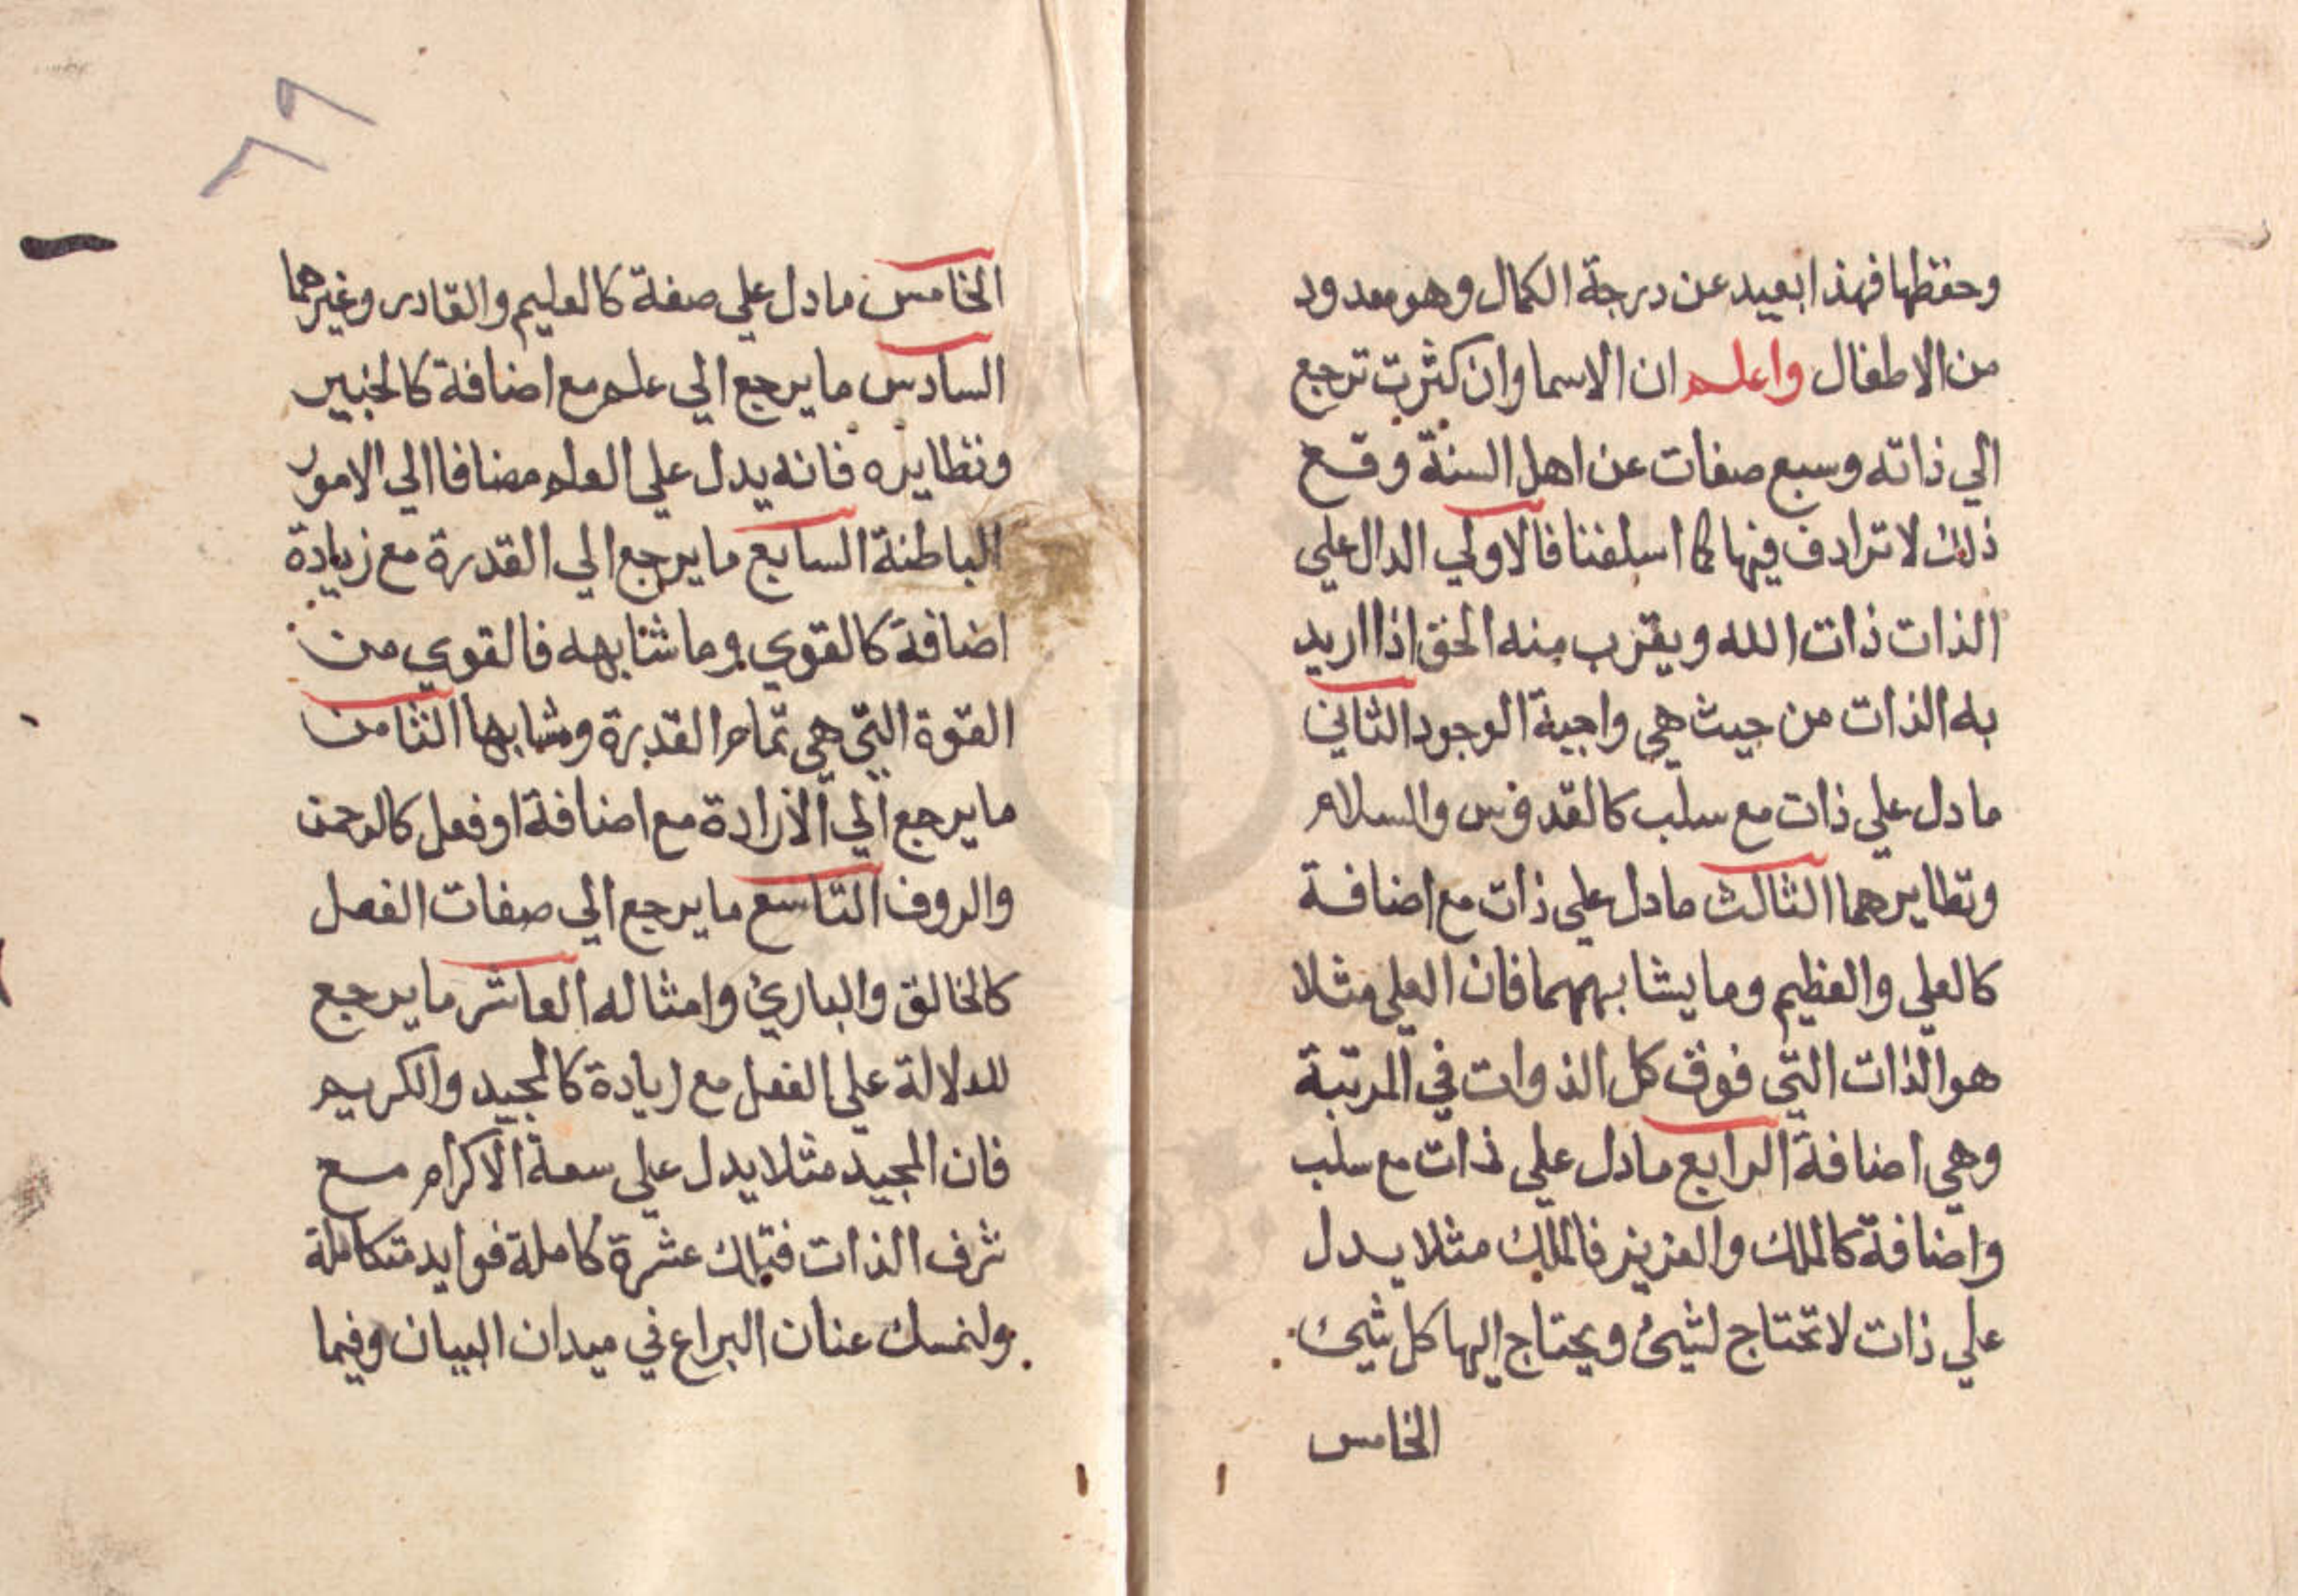 وحفظها فهذا بعيد عن درجة الكمال وهو معدود
من الاطفال واعلم ان الاسما وان كثرت ترجع
الي ذاته وسبع صفات عن اهل السنة وقع
ذلك لا ترادف فيها كما اسلفنا فالاولي الدال علي
الذات ذات الله ويقرب منه الحق اذا اريد
به الذات من حيث هي واجبة الوجود الثاني
ما دل علي ذات مع سلب كالقدوس والسلام
ونظايرهما الثالث ما دل علي ذات مع اضافة
كالعلي والعظيم وما يشابههما فان العلي مثلا
هو الذات التي فوق كل الذوات في المرتبة
وهي اضافة الرابع ما دل علي ذات مع سلب
واضافة كالملك والعزيز فالملك مثلا يدل
علي ذات لا تحتاج لشيئ ويحتاج اليها كل شيئ
الخامس
٦٩
الخامس ما دل علي صفة كالعليم والقادر وغيرهما
السادس ما يرجع الي علم مع اضافة كالخبير
ونظايره فانه يدل علي العلم مضافا الي الامور
الباطنة السابع ما يرجع الي القدرة مع زيادة
اضافة كالقوي وما شابهه فالقوي من
القوة التي هي تمام القدرة ومشابها الثامن
ما يرجع الي الارادة مع اضافة او فعل كالرحمن
والروف التاسع ما يرجع الي صفات الفعل
كالخالق والباريئ وامثاله العاشر ما يرجع
للدلالة علي الفعل مع زيادة كالمجيد والكريم
فان المجيد مثلا يدل علي سعة الاكرام مع
شرف الذات فتلك عشرة كاملة فوايد متكاملة
ولنمسك عنان اليراع في ميدان البيان وفيما